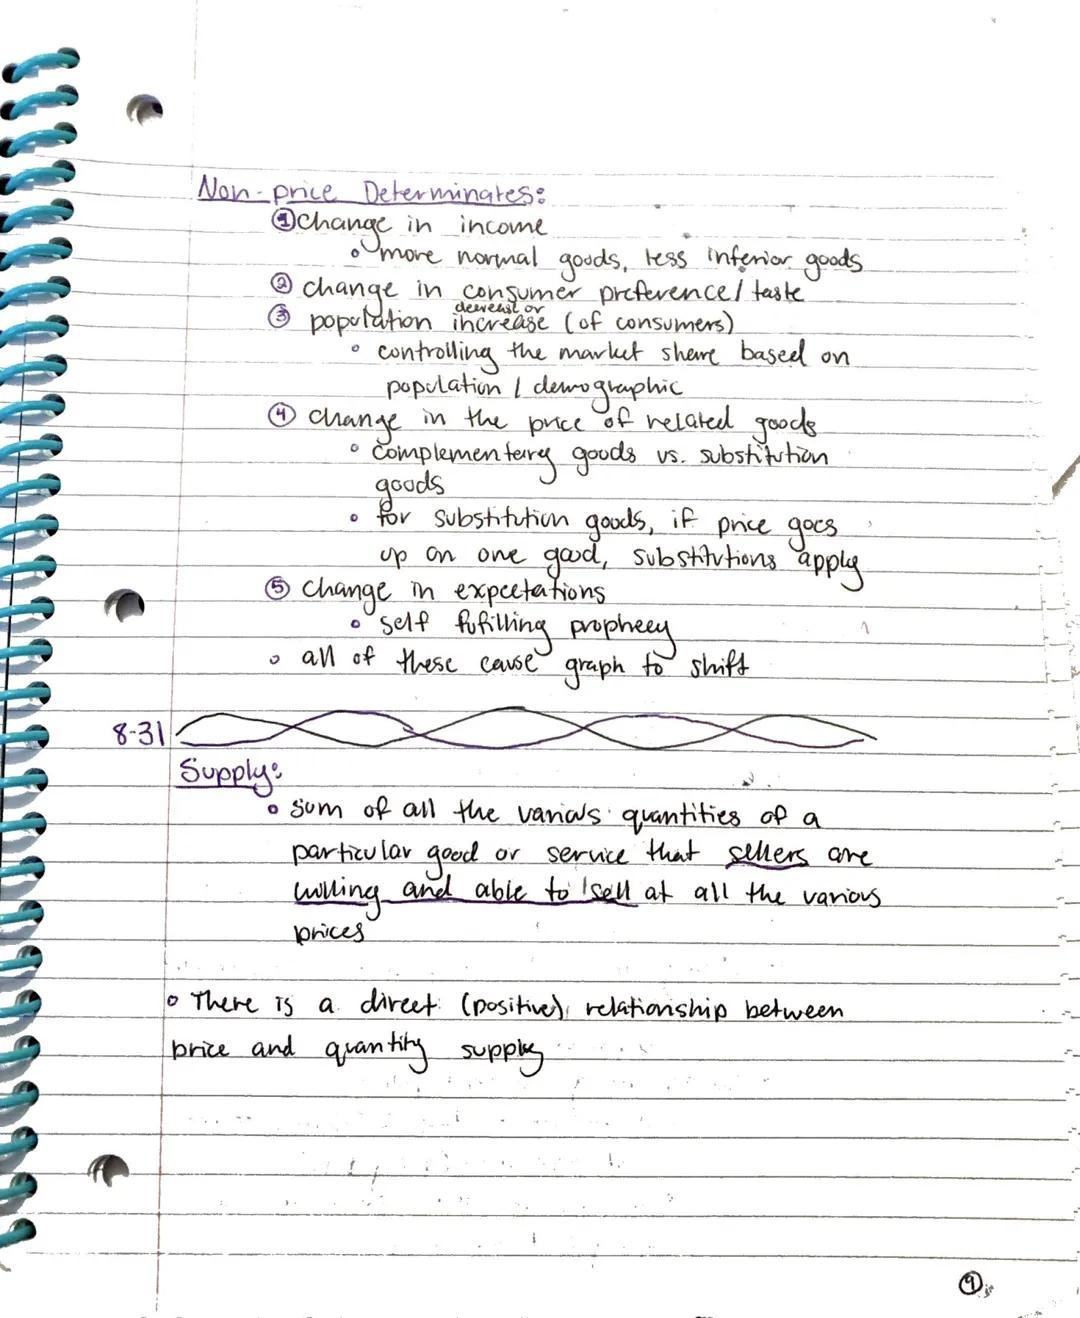 Non-price Determinates:
① change in income
◦ more normal goods, less inferior goods
② change in consumer preference/ taste
decrease or
③ population increase (of consumers)
◦ controlling the market share based on
population / demographic
④ change in the price of related goods
◦ complementary goods vs. substitution
goods
◦ for substitution goods, if price goes
up on one good, substitutions apply
⑤ change in expectations
◦ self fufilling prophecy
◦ all of these cause graph to shift
8-31
Supply:
◦ sum of all the various quantities of a
particular good or service that sellers are
willing and able to sell at all the various
prices
◦ There is a direct (positive) relationship between
price and quantity supply